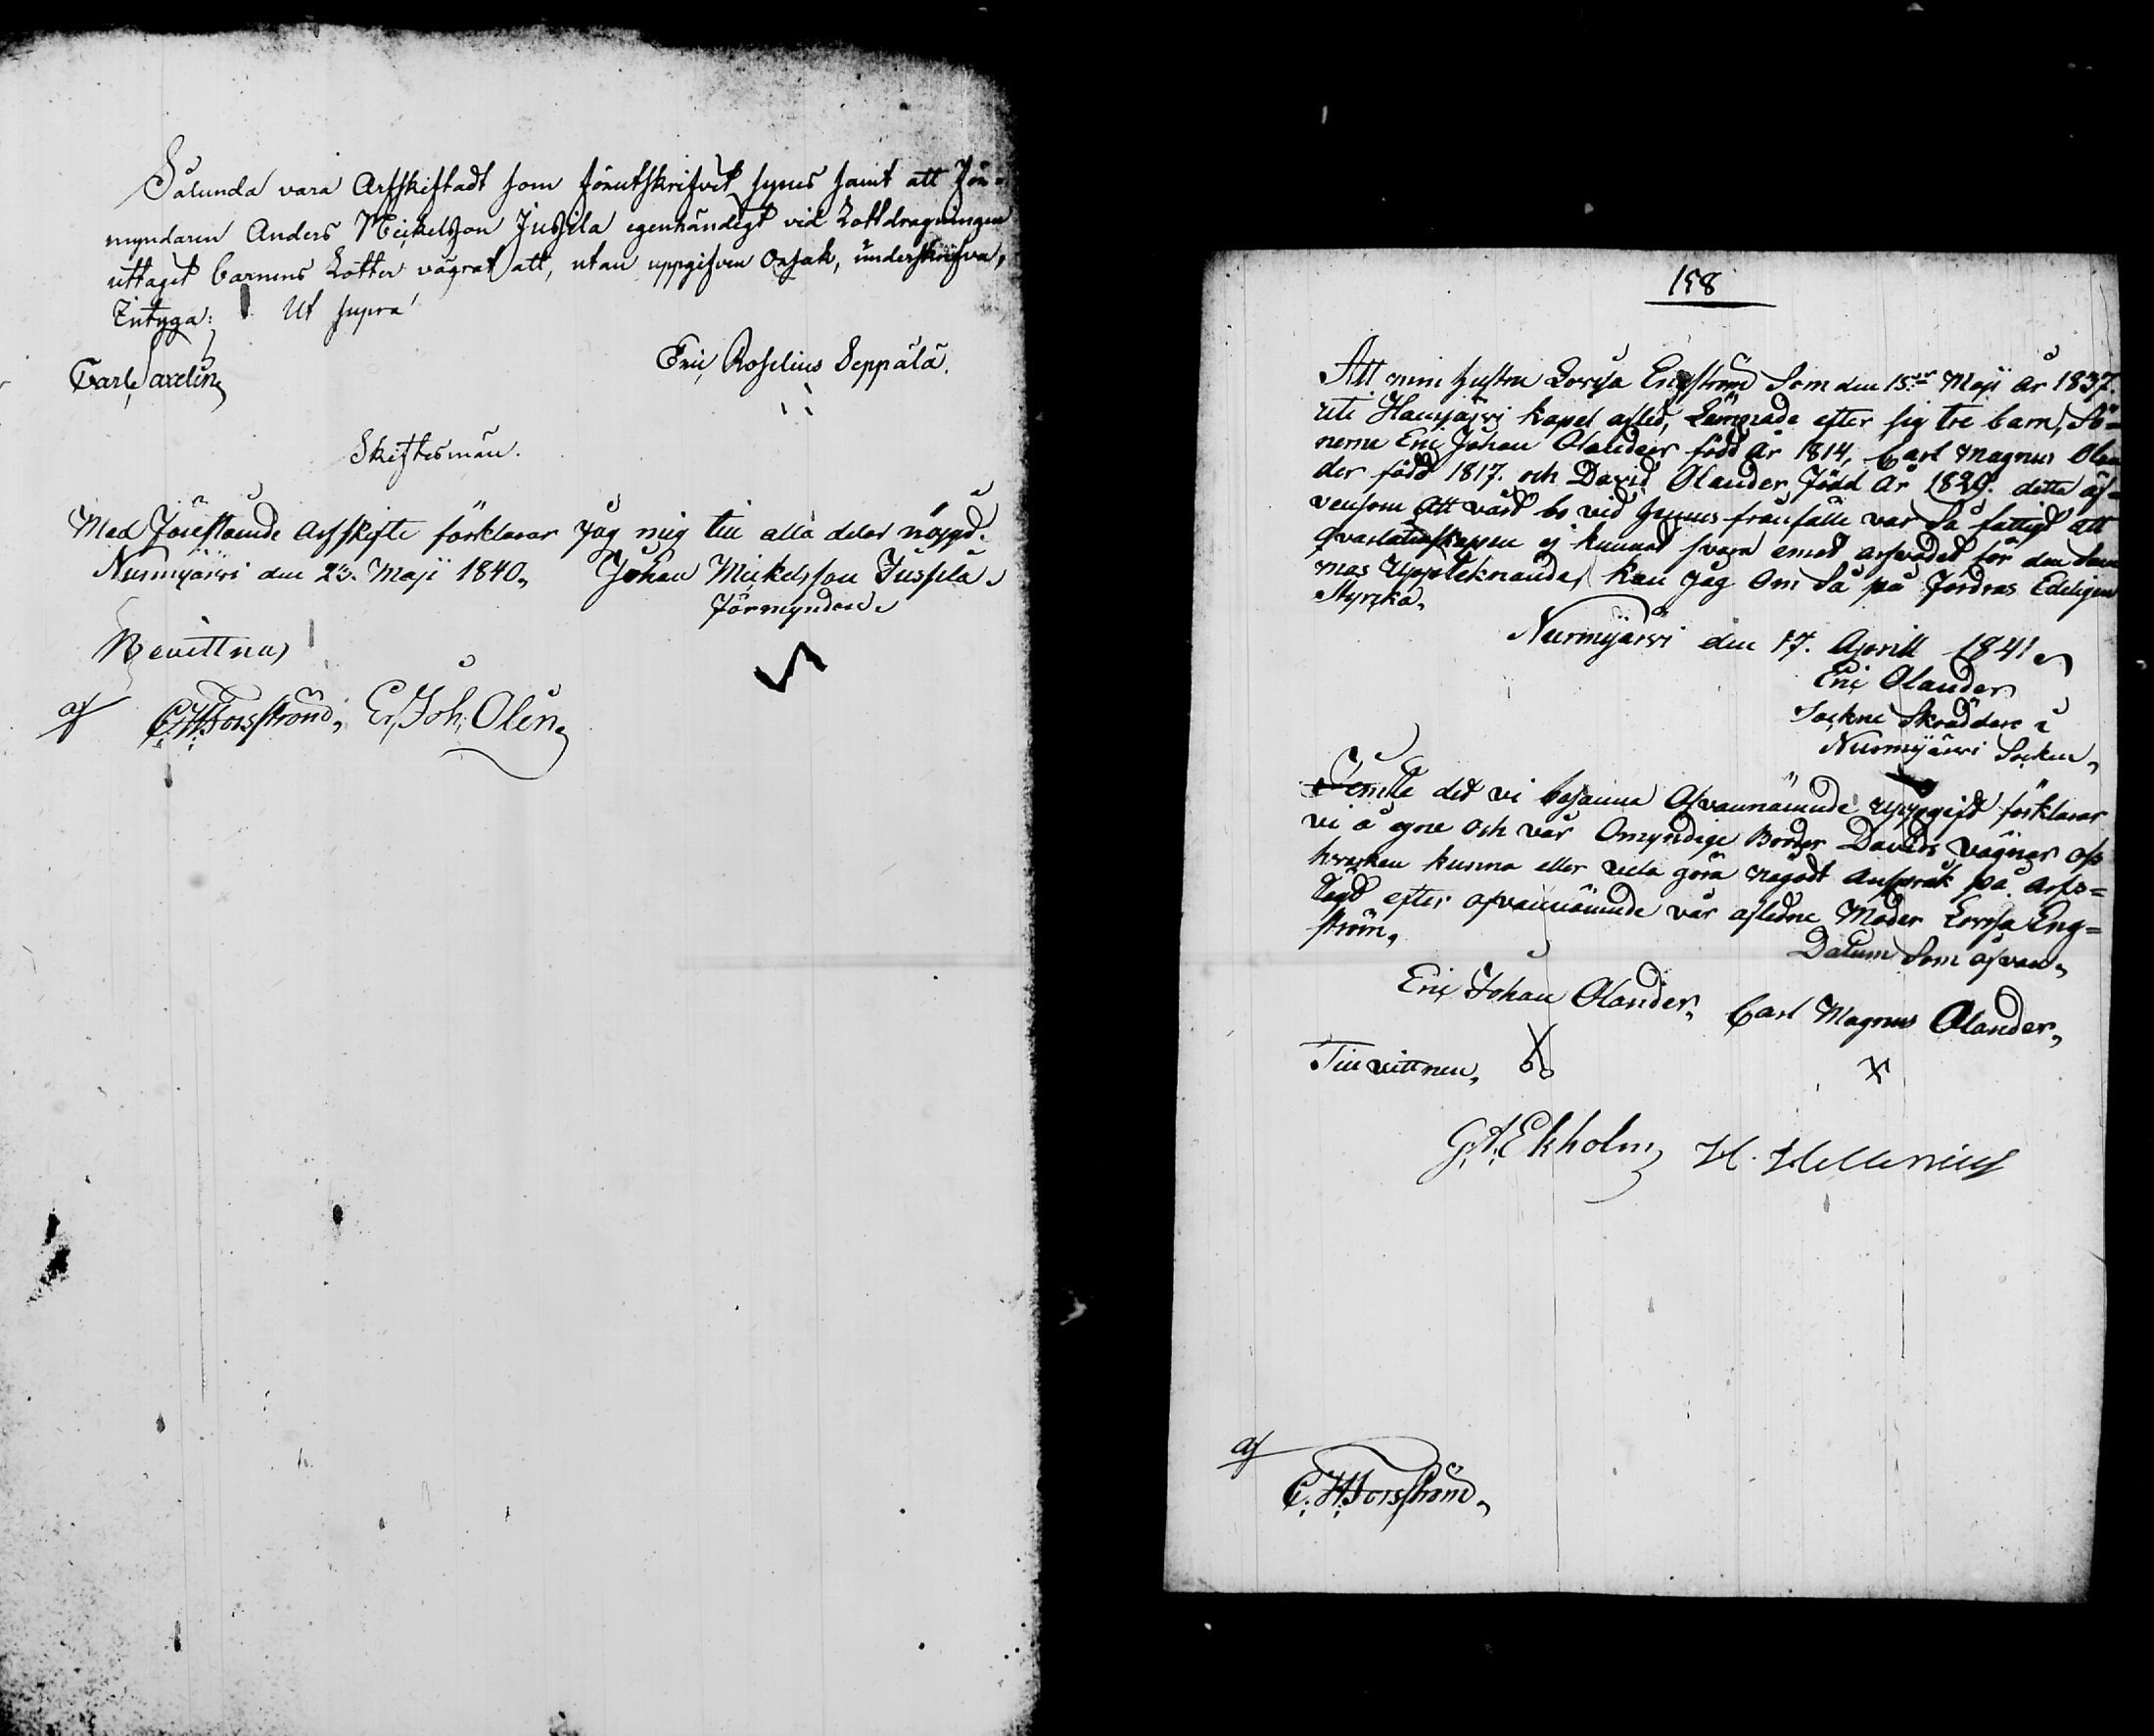 Sålunda vara Arfskiftadt som förutskrifvet synes samt att För-
myndaren Anders Mickelsson Jussila egenhändigt vid Lottdragningen
uttaget barnens Lotter vägrat att, utan uppgifven Orsak, underskrifva,
Intyga: Ut supra
Carl Saxelin,
Eric Roselius Seppälä.
Skiftesmän.
Med Förestående Arfskifte förklarar Jag mig till alla delar nöjgd.
Nurmijärvi den 23. Maji 1840, Johan Mickelsson Jussila,
Förmyndare
Bevittna,
af C. W. Forsström, Er. Joh. Olin,
158
Att min hustru Lovisa Engström Som den 15de Maji år 1837.
uti kapel afled, Lämnade efter sig tre barn, Sö-
nerne Eric Johan Olander född år 1814, Carl Magnus Olan
der född 1817. och David Olander Född år 1829. detta äf-
vensom Att vårt bo vid hennes frånfälle var Så fattigt att
qvarlåtenskapen ej kunnat svara emot arfvodet för den Sam
mas Uppteknande, kan Jag Om Så på fordras Edeligen
Styrcka,
Nurmijärvi den 17. Aprill 1841
Eric Olander
Sockne Skräddare i
Nurmijärvi Socken,
Jemte det vi besanna Ofvannämnde uppgift förklarar
vi å egne och vår Omyndige Broder Davids vägnar oss
hvarken kunna eller vela göra någodt Anspråk på arfs-
lägd efter ofvannämnde vår aflidne Moder Lovisa Eng-
ström,
Datum Som ofvan,
Eric Johan Olander, Carl Magnus Olander,
Till vittnen,
G. A. Ekholm, H. Hellenius
af
C. W. Forsström,